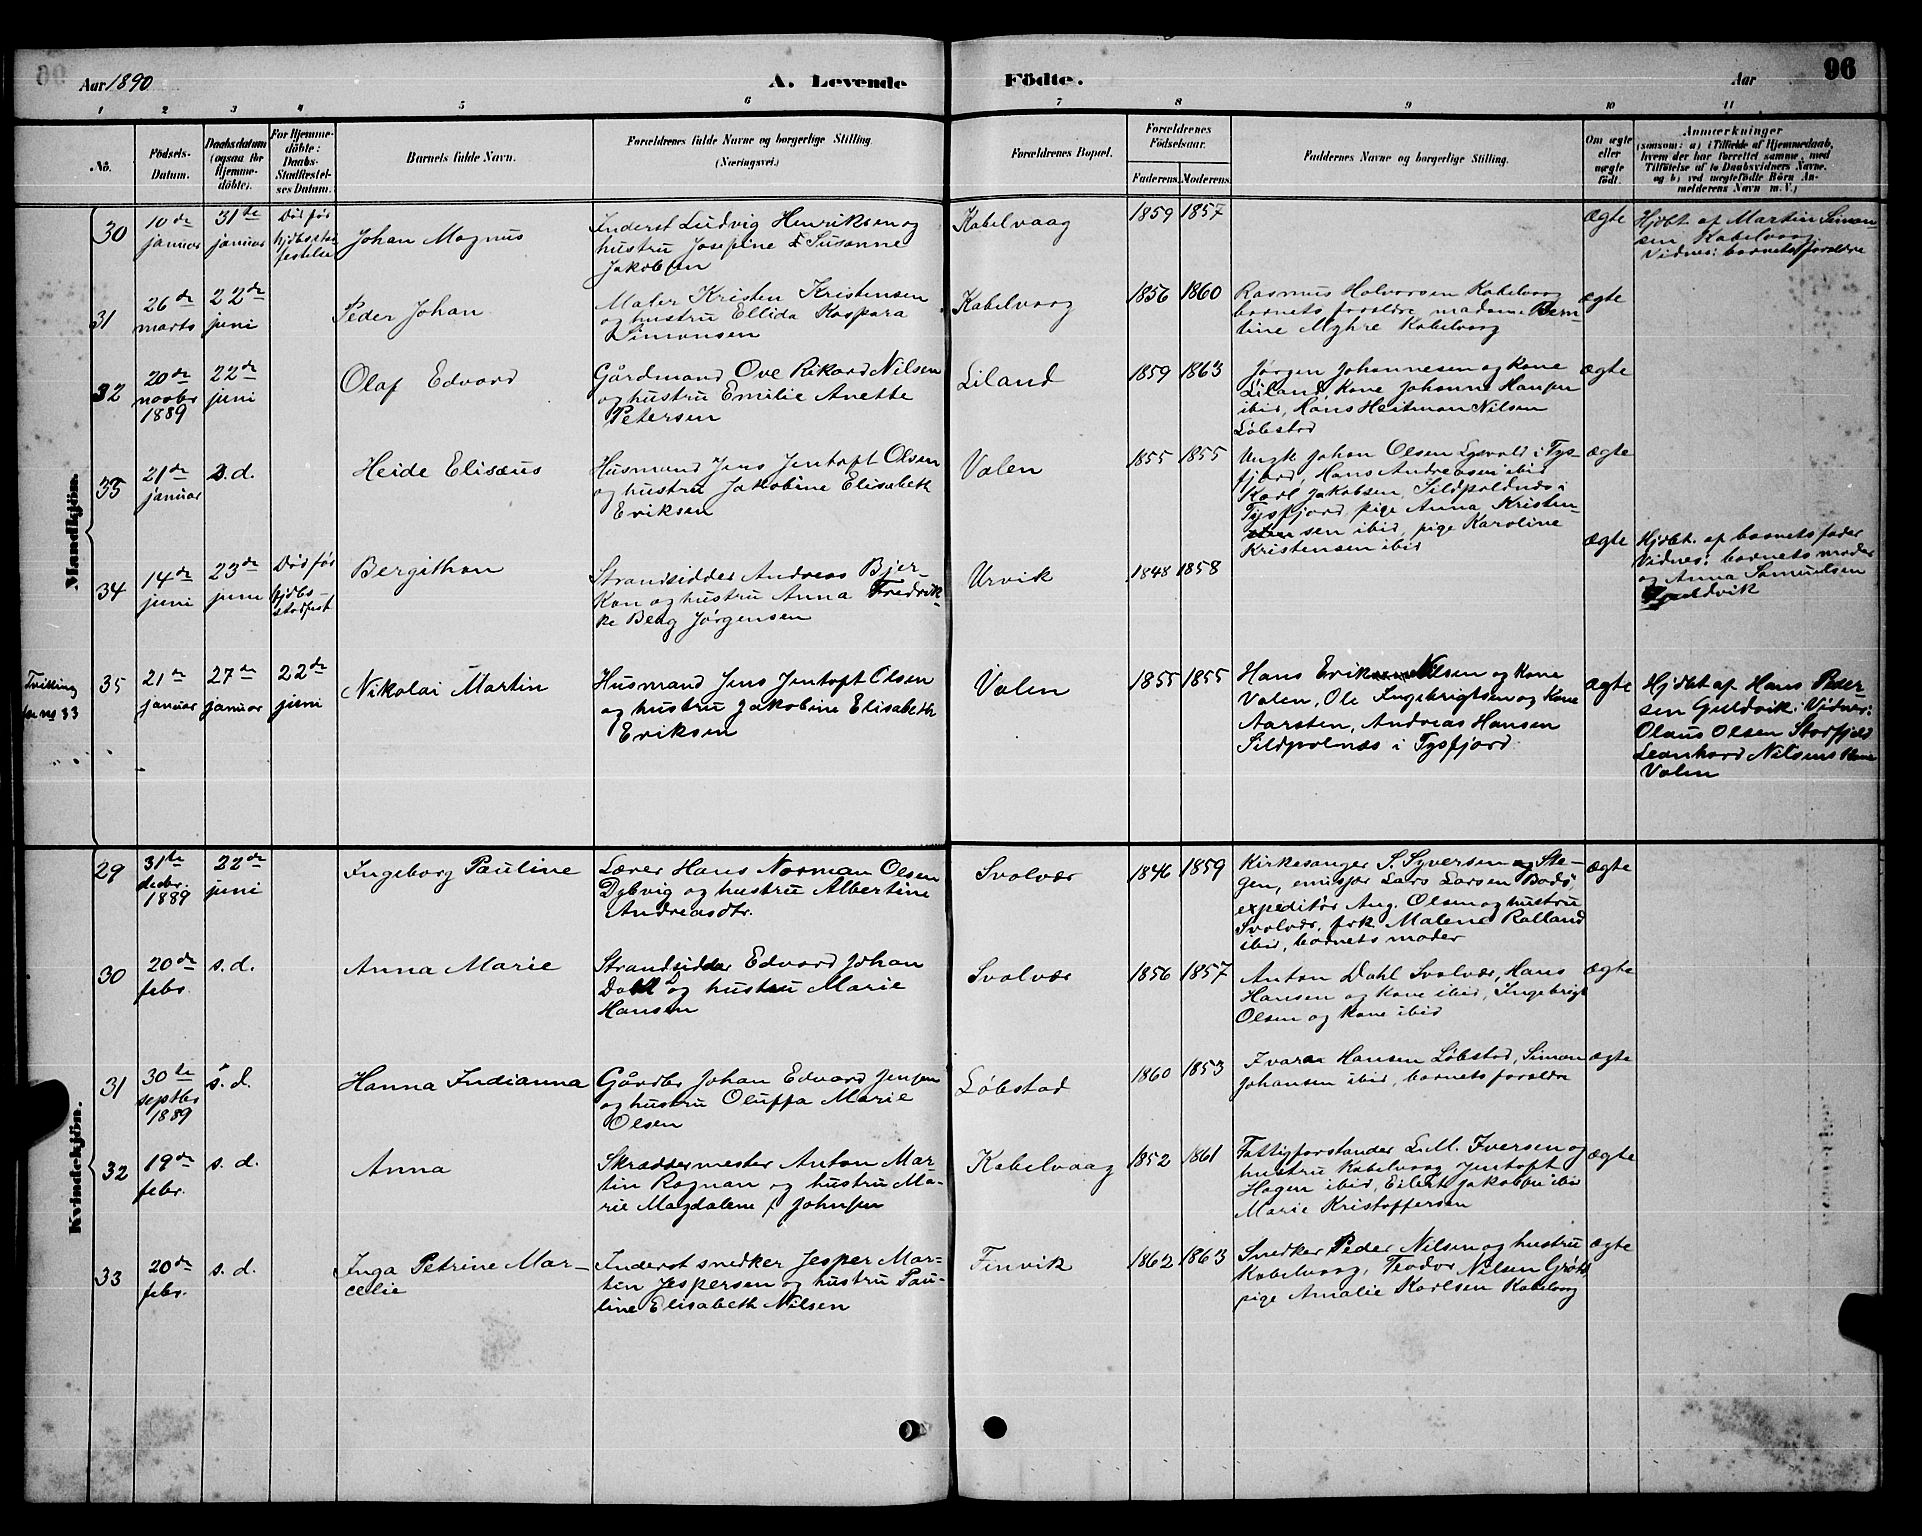 Aar 1890
A. Levende
Födte.
Aar
96
1 2 3 4 5 6 7 8 9 10 11
No.
Födsels-
Datum.
Daabsdatum
(ogsaa for
Hjemme-
döbte).
For Hjemme-
döbte:
Daabs-
Stadfæstel-
ses Datum.
Barnets fulde Navn.
Forældrenes fulde Navne og borgerlige Stilling
(Næringsvei.)
Forældrenes Bopæl.
Forældrenes
Födselsaar.
Faderens. Moderens.
Faddernes Navne og borgerlige Stilling.
Om ægte
eller
uægte
født.
Anmærkninger
(saasom: a) i Tilfælde af Hjemmedaab,
hvem der har forrettet samme, med
Tilföielse af to Daabsvidners Navne.
og b) ved uægtefödte Börn An-
melderens Navn m. V.)
Mandkjön.
30
10de
januar
31te
januar
Død før
hjdbs stad
festelse
Johan Magnus
Inderst Ludvig Henriksen og
hustru Josefine Susanne
Jakobsen
Kabelvaag
1859 1857
ægte
Hjdbt. af Martin Simon-
sen Kabelvaag
Vidnes: barnets foraldre
31
26de
marts
22de
juni
Peder Johan
Maler Kristen Kristensen
og hustru Ellida Kaspara
Simonsen
Kabelvaag
1856 1860
Rasmus Halvorsen Kabelvaag
barnets foraldre, madame Bern-
tine Myhre Kabelvaag
ægte
32
20de
novbr
1889
22de
juni
Olaf Edvard
Gårdmand Ove Rikard Nilsen
og hustru Emilie Anette
Petersen
Liland
1859 1863
Jørgen Johannesen og Kone
Liland, Kone Johanna Hansen
ibid, Hans Heitman Nilsen
Løbstad
ægte
33
21de
januar
s.d.
Heide Elisæus
Husmand Jens Jentoft Olsen
og hustru Jakobine Elisabeth
Eriksen
Valen
1855 1855
Ungk. Johan Olsen Lysvold i Tys-
fjord, Hans Andreasen ibid
Karl Jakobsen, Sildpoldnæs i
Tysfjord, pige Anna Kristen-
sen ibid, pige Karoline
Kristensen ibid
ægte
34
14de
juni
23de
juni
Død før
hjdbs-
stadfest
Bergithon
Strandsidder Andreas Bjer-
kan og hustru Anna Fredrik-
ke Berg Jørgensen
Urvik
1848 1858
ægte
Hjdbt. af barnets fader
Vidnes: barnets moder
og Anna Samuelsen
Guldvik
Tvilling
til no 33
35
21de
januar
27de
januar
22de
juni
Nikolai Martin
Husmand Jens Jentoft Olsen
og hustru Jakobine Elisabeth
Eriksen
Valen
1855 1855
Hans Nilsen og Kone
Valen, Ole Ingebrigtsen og Kone
Aarsten, Andreas Hansen
Sildpolnæs i Tysfjord
ægte
Hjdbt af Hans Peder-
sen Guldvik. Vidnes:
Olaus Olsen Storfjeld
Leonhard Nilsens Kone
Valen
Kvindekjön.
29
31te
decbr.
1889
22de
juni
Ingeborg Pauline
Lærer Hans Norman Olsen
Dybvig og hustru Albertine
Andreasdtr.
Svolvær
1846 1859
Kirkesanger S. Syversen og Ste-
gen, emisjær Lars Larsen Bodø,
expeditør Aug. Olsen og hustru
Svolvær, frk Malene Rolland
ibid, barnets moder
ægte
30
20de
febr.
s.d.
Anna Marie
Strandsidder Edvard Johan
Dahl og hustru Marie
Hansen
Svolvær
1856 1857
Anton Dahl Svolvær, Hans
Hansen og Kone ibid, Ingebrigt
Olsen og Kone ibid
ægte
31
30te
septbr
1889
s.d.
Hanna Indianna
Gårdbr Johan Edvard Jensen
og hustru Oluffa Marie
Olsen
Løbstad
1860 1853
Ivar Hansen Løbstad, Simon
Johansen ibid, barnets foraldre
ægte
32
19de
febr.
s.d.
Anna
Skræddermester Anton Mar-
tin Rognan og hustru Ma-
rie Magdalene Johnsen
Kabelvaag
1852 1861
Fattigforstander L. M. Iversen og
hustru Kabelvaag Jentoft
Hagen ibid, Eilert Jakobsen ibid
Marie Kristoffersen
ægte
33
20de
febr.
s.d.
Inga Petrine Mar-
celie
Inderst snedker Jesper Mar-
tin Jespersen og hustru Pau-
line Elisabeth Nilsen
Finvik
1862 1863
Snedker Peder Nilsen og hustru
Kabelvaag, Teodor Nilsen
pige Amalie Karlsen Kabelvaag
ægte